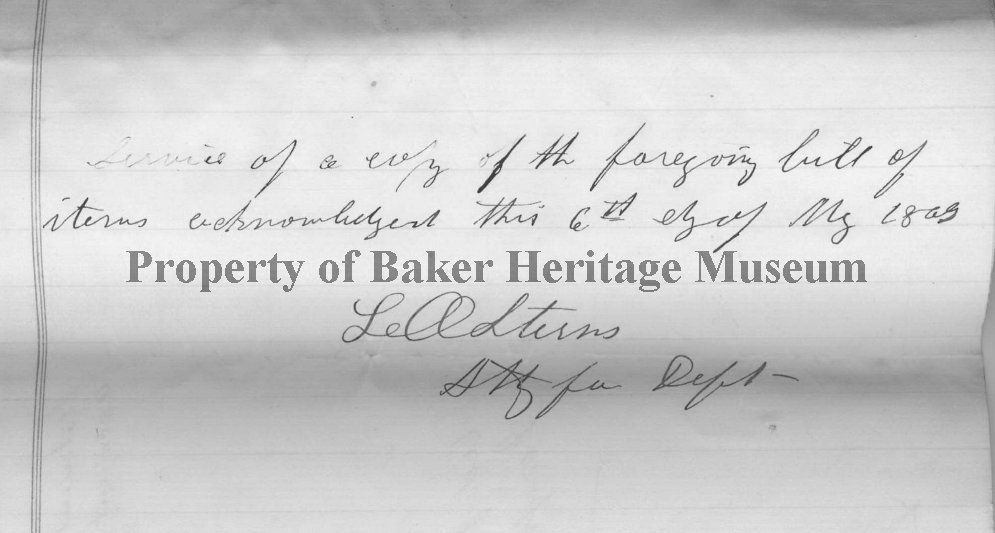 Service of a copy of th foregoing bill of
items acknowledged this 6th dy of My 1893
Property of Baker Heritage Museum
L O Sterns
Atty for Deft